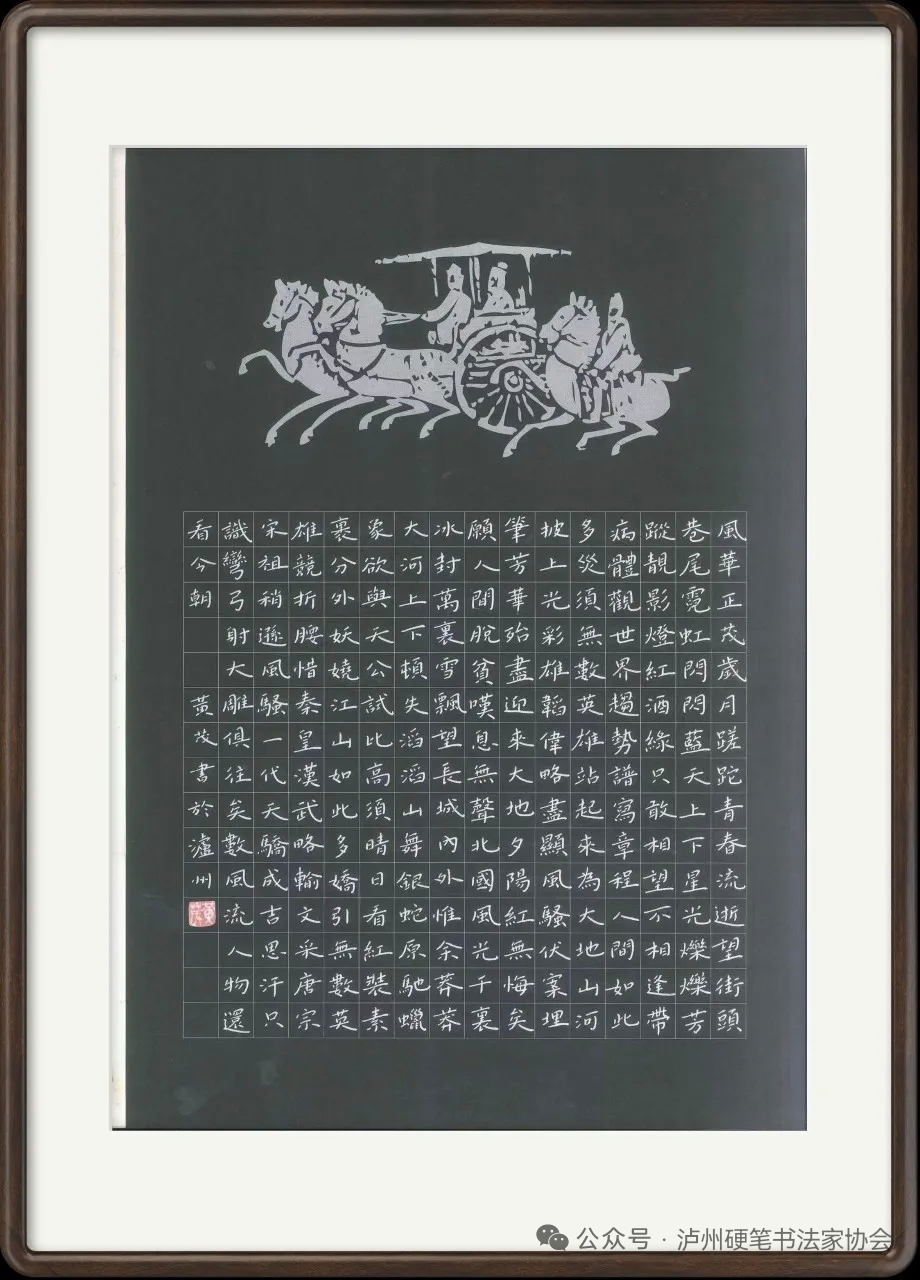 風華正茂歲月蹉跎青春流逝望街頭
巷尾霓虹閃閃藍天上下星光爍爍芳
蹤靚影燈紅酒緣只敢相望不相逢帶
病體觀世界趨勢譜寫章程人間如此
多災須無數英雄站起來為大地山河
披上光彩雄韜偉略盡顯風騷伏案埋
筆芳華殆盡迎來大地夕陽紅無悔矣
願人間脫貧嘆息無聲北國風光千裏
冰封萬裏雪飄望長城內外惟余莽莽
大河上下頓失滔滔山舞銀蛇原馳蠟
象欲與天公試比高須晴日看紅裝素
裹分外妖嬈江山如此多嬌引無數英
雄競折腰惜秦皇漢武略輸文采唐宗
宋祖稍遜風騷一代天驕成吉思汗只
識彎弓射大雕俱往矣數風流人物還
看今朝 黃茂書於瀘州
公众号 · 泸州硬笔书法家协会